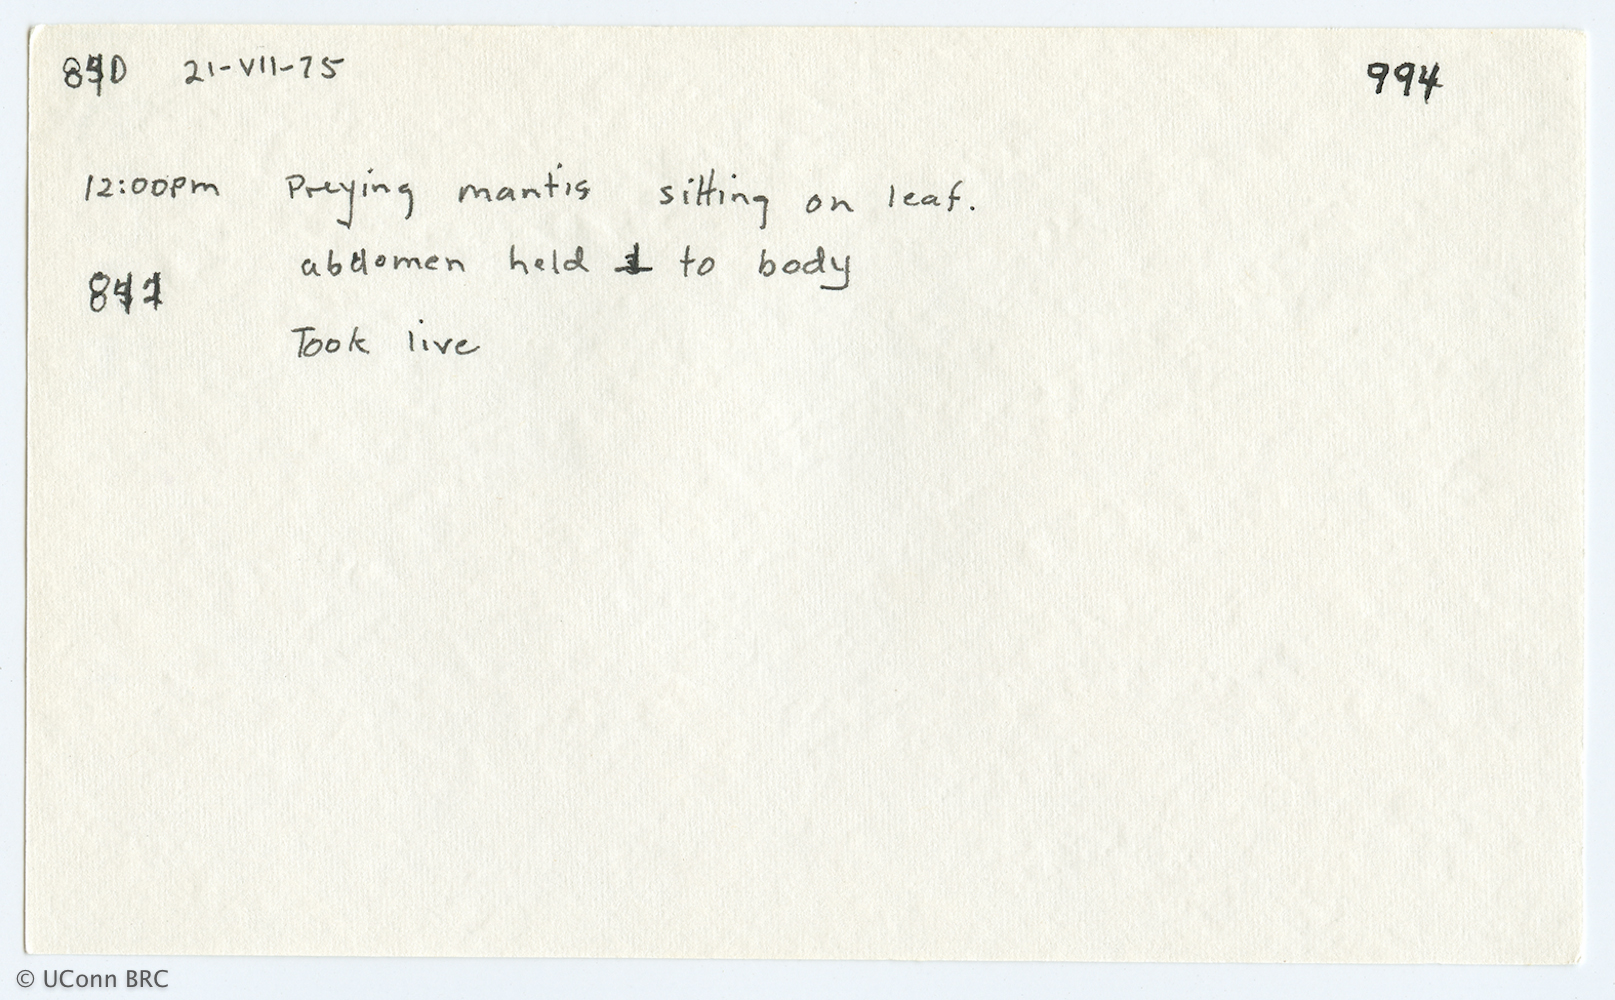 21-VII-75 994
12:00pm Preying mantis sitting on leaf.
abdomen held ⊥ to body
Took live
© UConn BRC